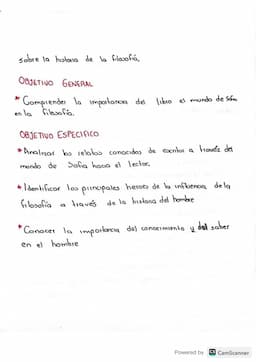 sobre la historia de la filosofía,
OBJETIVO GENERAL
* Comprender la importancia del libro el mundo de Sofia
en la filosofía.
OBJETIVO ESPECIFICO
* Analizar los relatos conocidos de escritor a través del
mundo de Sofia hacia el lector.
* Identificar los principales heroes de la influencia de la
filosofía a través de la historia del hombre
* Conocer la importancia del conocimiento y del saber
en el hombre
Powered by CS CamScanner